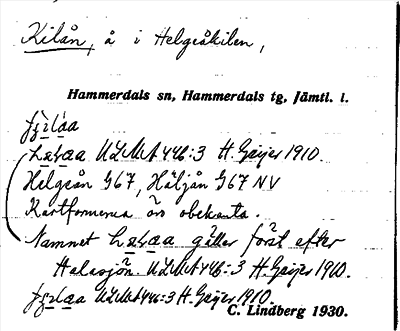 Kilån, å i Helgeåkilen,
Hammerdals sn, Hammerdals tg, Jämtl. l.
ULMA 446:3 H. Geijer 1910.
Helgeån G67, Häljån G67 NV
Kartformerna äro obekanta.
Namnet gäller först efter
Halasjön. ULMA 446:3 H. Geijer 1910.
ULMA 446:3 H. Geijer 1910.
C. Lindberg 1930.